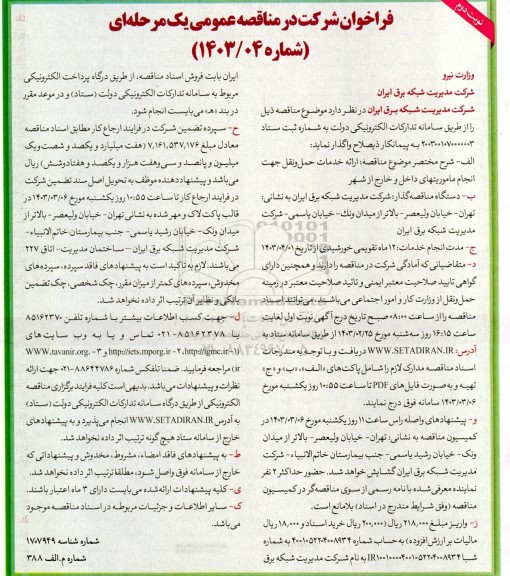 نوبت دوم
فراخوان شرکت در مناقصه عمومی یک مرحله‌ای
(شماره ۱۴۰۳/۰۴)
وزارت نیرو
شرکت مدیریت شبکه برق ایران
شرکت مدیریت شبکه برق ایران در نظر دارد موضوع مناقصه ذیل
را از طریق سامانه تدارکات الکترونیکی دولت به شماره ثبت ستاد
۲۰۰۳۰۰۱۰۷۰۰۰۰۰۳ به پیمانکار ذیصلاح واگذار نماید:
الف- شرح مختصر موضوع مناقصه: ارائه خدمات حمل و نقل جهت
انجام ماموریتهای داخل و خارج از شهر
ب- دستگاه مناقصه گذار: شرکت مدیریت شبکه برق ایران به نشانی:
تهران- خیابان ولیعصر- بالاتر از میدان ونک- خیابان یاسمی- شرکت
مدیریت شبکه برق ایران
ج- مدت انجام خدمات: ۱۲ ماه تقویمی خورشیدی از تاریخ ۱۴۰۳/۰۴/۰۱
د- متقاضیانی که آمادگی شرکت در مناقصه را دارند و همچنین دارای
گواهی تایید صلاحیت معتبر ایمنی و تائید صلاحیت معتبر در زمینه
حمل و نقل از وزارت کار و امور اجتماعی می‌باشند، می‌توانند اسناد
مناقصه را از ساعت ۰۸:۰۰ صبح تاریخ درج آگهی نوبت اول لغایت
ساعت ۱۶:۱۵ روز سه‌شنبه مورخ ۱۴۰۳/۰۲/۲۵ از طریق سامانه ستاد به
آدرس: WWW.SETADIRAN.IR دریافت و با توجه به مندرجات
اسناد مناقصه مدارک لازم را شامل پاکت‌های «الف»، «ب» و «ج»
تهیه و به صورت فایل‌های PDF تا ساعت ۱۰:۵۵ روز یکشنبه مورخ
۱۴۰۳/۰۳/۰۶ سامانه فوق درج نمایند.
و- پیشنهادهای واصله راس ساعت ۱۱ روز یکشنبه مورخ ۱۴۰۳/۰۳/۰۶ در
کمیسیون مناقصه به نشانی: تهران- خیابان ولیعصر- بالاتر از میدان
ونک- خیابان رشید یاسمی- جنب بیمارستان خاتم الانبیاء- شرکت
مدیریت شبکه برق ایران گشایش خواهد شد. حضور حداکثر ۲ نفر
نماینده معرفی شده با نامه رسمی از سوی مناقصه‌گر در کمیسیون
مناقصه (وفق شرایط مندرج در اسناد) بلامانع است.
ز- واریز مبلغ ۲۱۸,۰۰۰ ریال (۲۰۰,۰۰۰ ریال خرید اسناد و ۱۸,۰۰۰ ریال
مالیات بر ارزش افزوده) به حساب شماره ۴۰۰۱۰۵۲۲۰۴۰۰۸۹۳۴ به شماره
شبا به نام شرکت مدیریت شبکه برق
ایران بابت فروش اسناد مناقصه، از طریق درگاه پرداخت الکترونیکی
مربوط به سامانه تدارکات الکترونیکی دولت (ستاد) و در موعد مقرر
در بند «هـ» می‌بایست انجام شود.
ح- سپرده تضمین شرکت در فرایند ارجاع کار مطابق اسناد مناقصه
معادل مبلغ ۷,۱۶۱,۵۳۷,۱۷۶ (هفت میلیارد و یکصد و شصت و یک
میلیون و پانصد و سی و هفت هزار و یکصد و هفتاد و شش) ریال
می‌باشد و پیشنهاددهنده موظف به تحویل اصل سند تضمین شرکت
در فرایند ارجاع کار تا ساعت ۱۰:۵۵ روز یکشنبه مورخ ۱۴۰۳/۰۳/۰۶ در
قالب پاکت لاک و مهر شده به نشانی تهران- خیابان ولیعصر- بالاتر از
میدان ونک- خیابان رشید یاسمی- جنب بیمارستان خاتم الانبیاء-
شرکت مدیریت شبکه برق ایران - ساختمان مدیریت- اتاق ۲۲۷
می‌باشند. لازم به تاکید است به پیشنهادهای فاقد سپرده، سپرده‌های
مخدوش، سپرده‌های کمتر از میزان مقرر، چک شخصی، چک تضمین
بانکی و نظایر آن ترتیب اثر داده نخواهد شد.
ل- جهت کسب اطلاعات بیشتر با شماره تلفن ۸۵۱۶۲۳۷۰
یا ۸۵۱۶۲۳۷۸-۰۲۱ تماس و یا به وب سایت‌های
۱- http://igmc.ir، ۲- http://iets.mporg.ir و ۳- www.tavanir.org.
ir) مراجعه فرمایید. ضمنا تلفکس شماره ۸۸۶۴۴۷۸۶-۰۲۱ جهت ارائه
نظرات و پیشنهادات می‌باشد. بدیهی است کلیه فرایند برگزاری مناقصه
الکترونیکی از طریق درگاه سامانه تدارکات الکترونیکی دولت (ستاد)
به آدرس WWW.SETADIRAN.IR انجام می‌پذیرد و به پیشنهادهای
خارج از سامانه ستاد هیچ گونه ترتیب اثر داده نخواهد شد.
ط- به پیشنهادهای فاقد امضاء، مشروط، مخدوش و پیشنهاداتی که
خارج از سامانه فوق واصل شود، مطلقا ترتیب اثر داده نخواهد شد.
ی- کلیه پیشنهادات ارائه شده می‌بایست دارای ۳ ماه اعتبار باشند.
ک- سایر اطلاعات و جزئیات مربوطه در اسناد مناقصه موجود
می‌باشد.
شماره شناسه ۱۷۰۷۹۴۹
شماره م.الف ۳۸۸